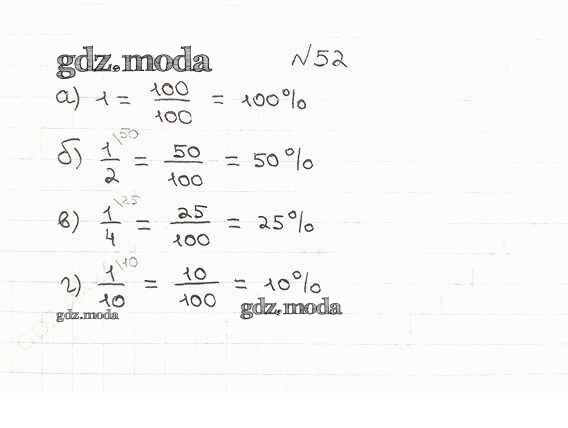 gdz.moda
№52
а) 1 = 100/100 = 100%
б) 1/2 \50 = 50/100 = 50%
в) 1/4 \25 = 25/100 = 25%
г) 1/10 \10 = 10/100 = 10%
gdz.moda
gdz.moda